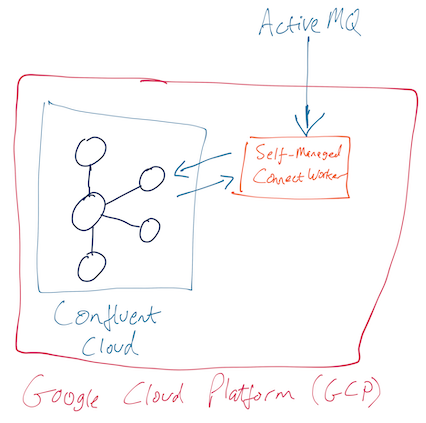 ActiveMQ
Self-Managed
Connect Worker
Confluent
Cloud
Google Cloud Platform (GCP)